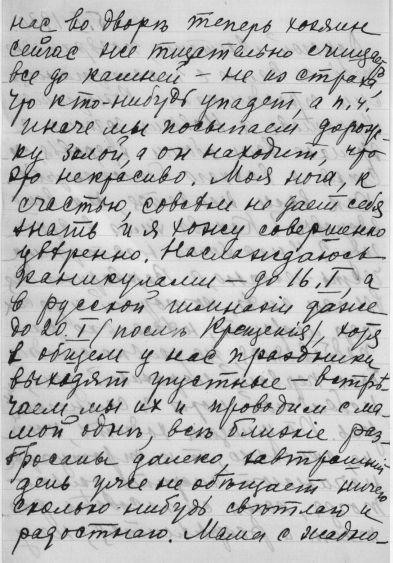 нас во дворѣ теперь хозяин
сейчас же тщательно счищает
все до камней – не из страха,
что кто-нибудь упадет, а п. ч.
иначе мы посыпаем дорож-
ку золой, а он находит, что
это некрасиво. Моя нога, к
счастью, совсѣм не дает себя
знать и я хожу совершенно
увѣренно. Наслаждаюсь
каникулами – до 16.I, а
в русской гимназiи даже
до 20.I (послѣ Крещенiя), хотя
в общем у нас праздники
выходят грустные – встрѣ-
чаем мы их и проводим с ма-
мой однѣ, всѣ близкiе раз-
бросаны далеко, завтрашнiй
день уже не обѣщает ничего
сколько-нибудь свѣтлаго и
радостнаго. Мама с жадно-